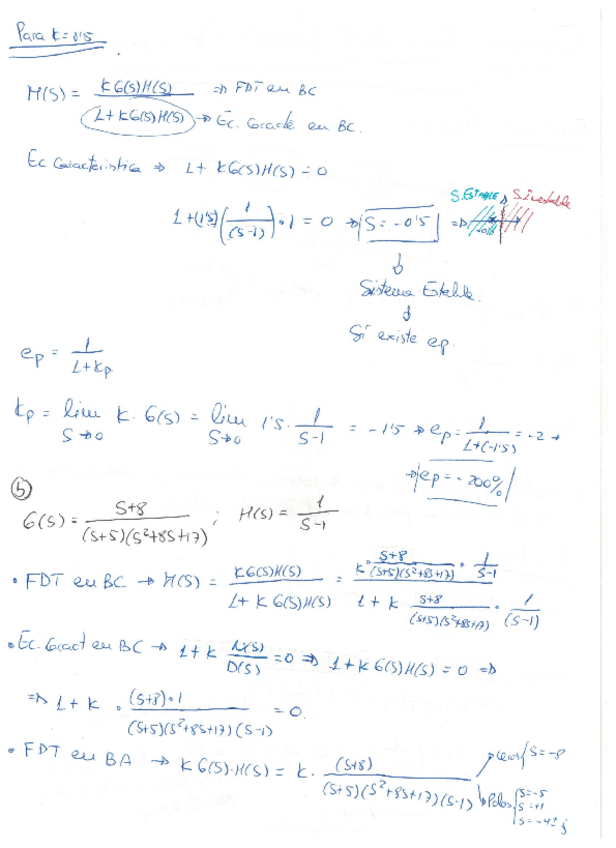 Para K=1'5
M(S) = KG(S)H(S) / (1+KG(S)H(S)) ⇒ FDT en BC
→ Ec. Caract. en BC.
Ec Característica ⇒ 1+ KG(S)H(S)=0
1+(1'5)(1/(S-1))·1 = 0 ⇒ S=-0'5 ⇒ S.ESTABLE S.Inestable
-0'5
↓
Sistema Estable.
↓
Sí existe ep.
ep = 1/(1+Kp)
Kp = lim S→0 K·G(S) = lim S→0 1'5·1/(S-1) = -1'5 → ep = 1/(1+(-1'5)) = -2 →
→ ep = -200%
⑤
G(S) = (S+8)/((S+5)(S²+8S+17)) ; H(S) = 1/(S-1)
• FDT en BC → M(S) = KG(S)H(S)/(1+KG(S)H(S)) = (K·(S+8)/((S+5)(S²+8S+17))·1/(S-1))/(1+K (S+8)/((S+5)(S²+8S+17))·1/(S-1))
• Ec. Caract en BC → 1+K N(S)/D(S) =0 ⇒ 1+KG(S)H(S)=0 ⇒
⇒ 1+K·((S+8)·1)/((S+5)(S²+8S+17)(S-1)) = 0.
• FDT en BA → KG(S)·H(S) = K·(S+8)/((S+5)(S²+8S+17)(S-1))
→ceros{S=-8
→Polos{S=-5
S=+1
S=-4±j